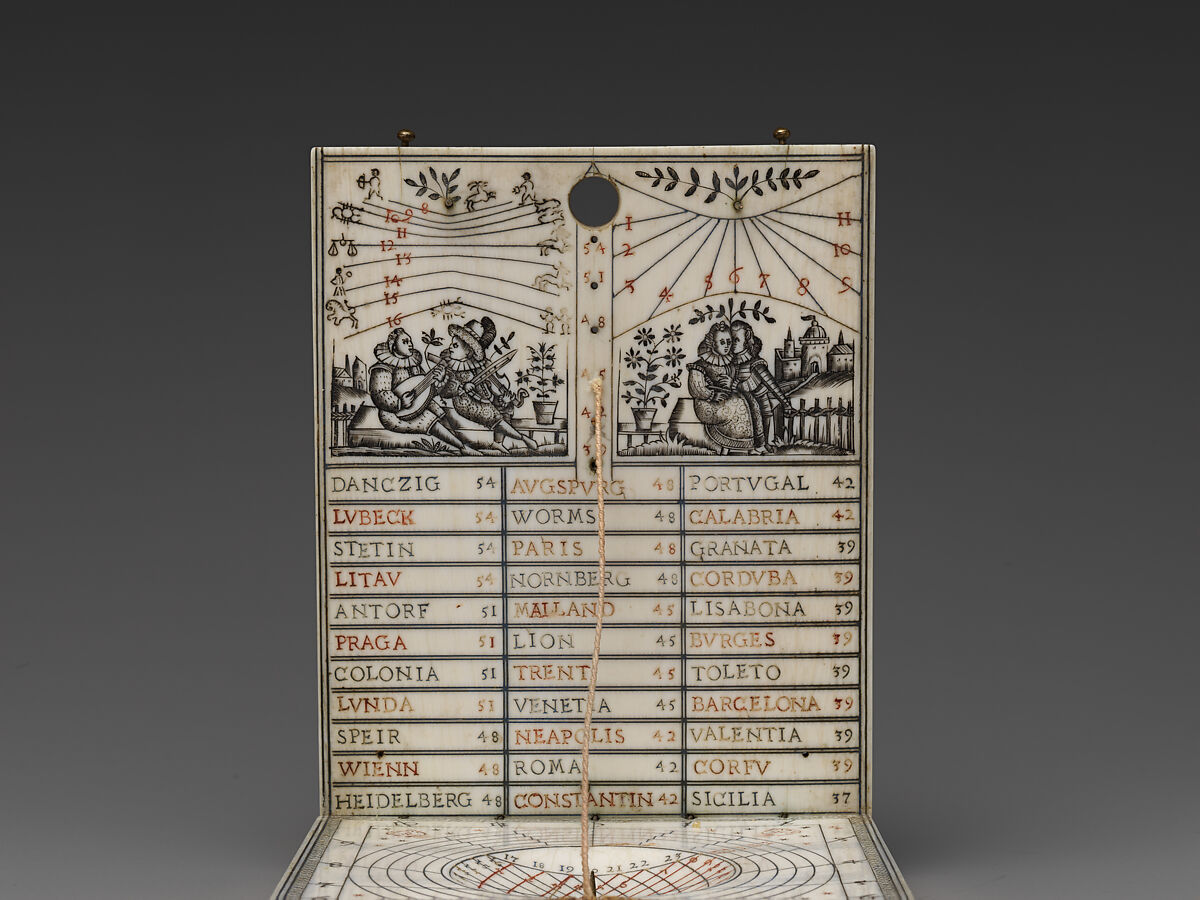 8
10 9
11
12
13
14
15
16
54
51
48
45
42
39
1 11
2 10
3 4 5 6 7 8 9
DANCZIG 54 AVGSPVRG 48 PORTVGAL 42
LVBECK 54 WORMS 48 CALABRIA 42
STETIN 54 PARIS 48 GRANATA 39
LITAV 54 NORNBERG 48 CORDVBA 39
ANTORF 51 MAILAND 45 LISABONA 39
PRAGA 51 LION 45 BVRGES 39
COLONIA 51 TRENT 45 TOLETO 39
LVNDA 51 VENETIA 45 BARCELONA 39
SPEIR 48 NEAPOLIS 42 VALENTIA 39
WIENN 48 ROMA 42 CORFV 39
HEIDELBERG 48 CONSTANTIN 42 SICILIA 37
17 18 19 21 22 23